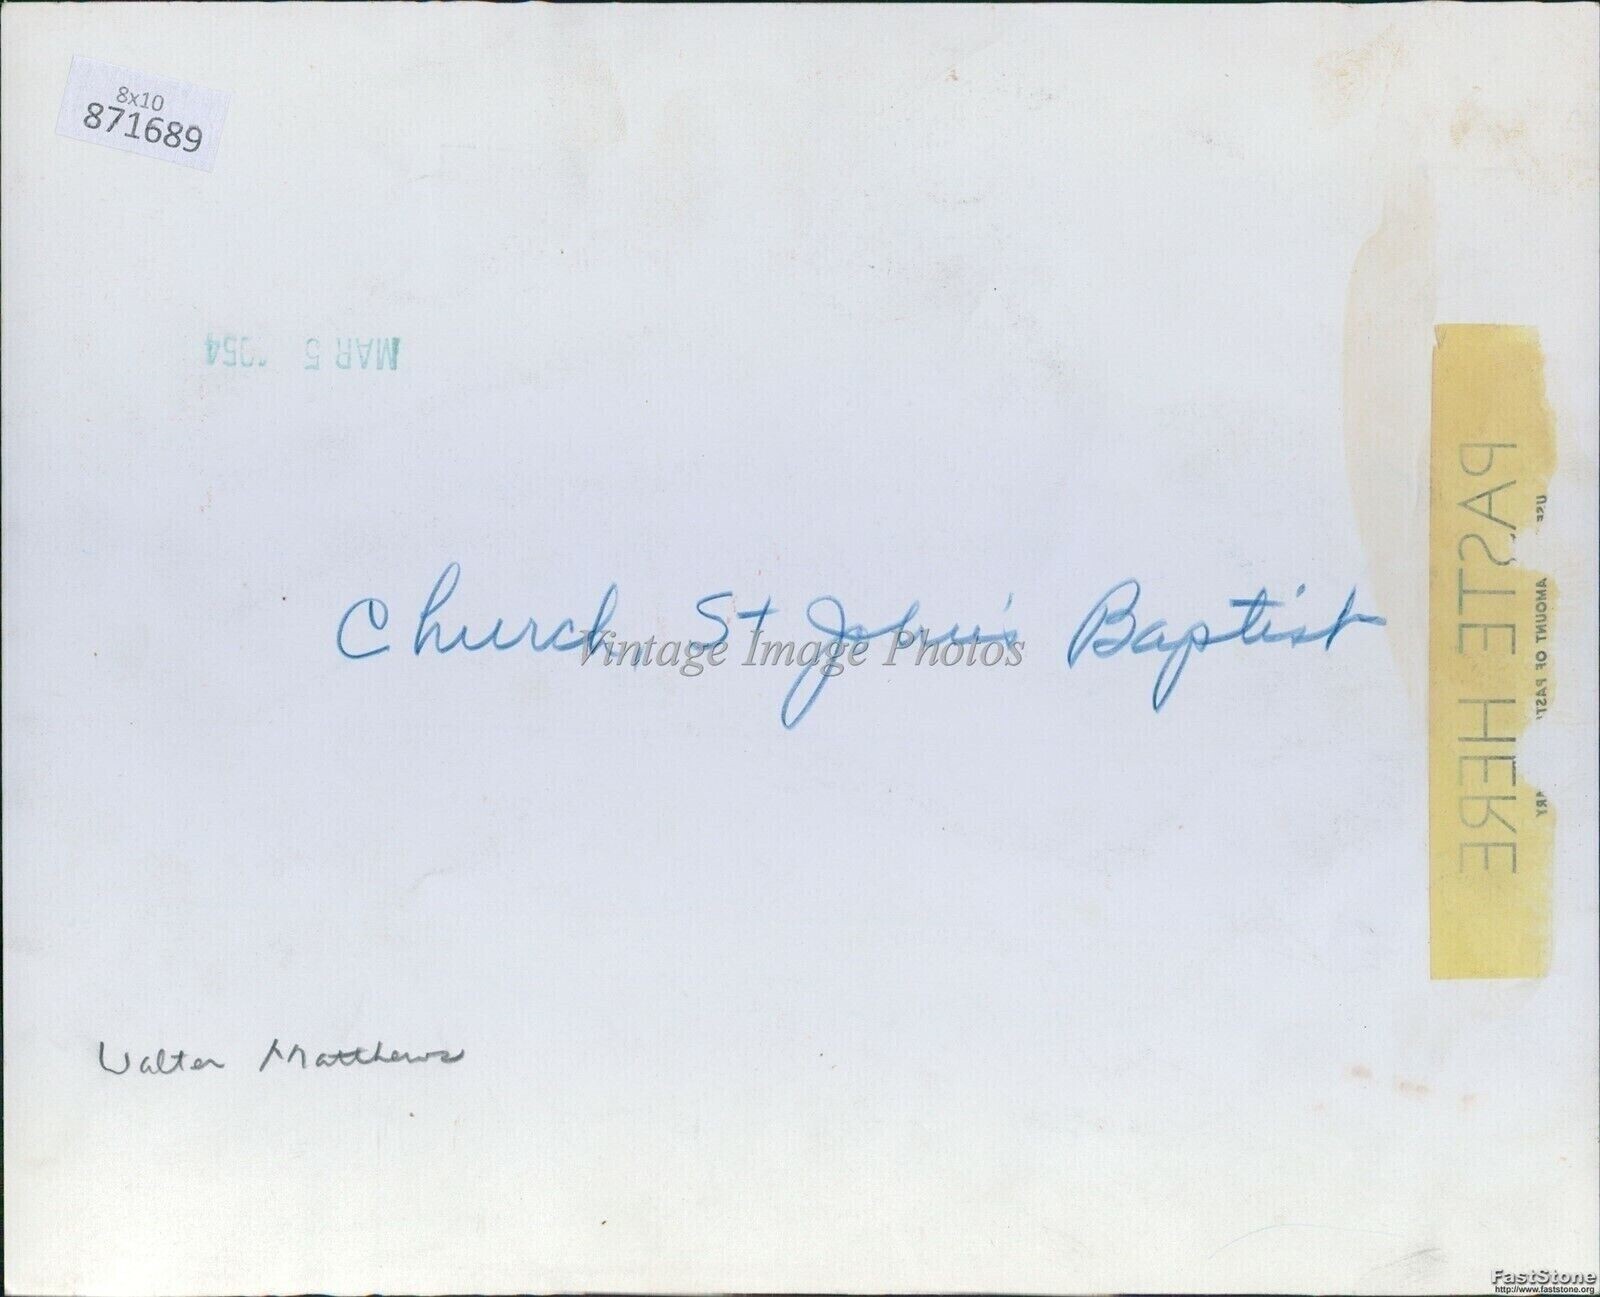 8x10
871689
MAR 5 1954
Church, St John's Baptist
Vintage Image Photos
PASTE HERE
USE
AMOUNT OF PAST
ARY
Walter Matthews
FastStone
http://www.faststone.org